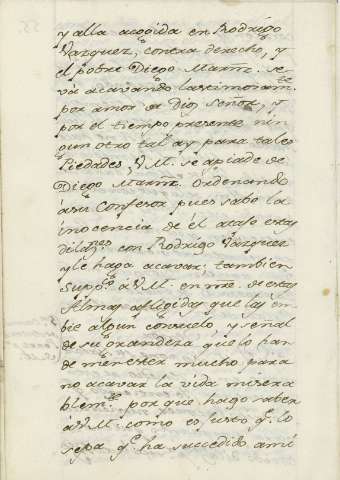 y alla acogida en Rodrigo
Vazquez, contra derecho, y
el pobre Diego Marrñz. se
va acavando lastimoram.te
por amor de Dios Señor, y
por el tiempo presente nin
gun otro tal ay para tales
Piedades, V.M. se apiade de
Diego Marrñz. Ordenando
á su Confesor pues sabe la
inocencia de él atage estas
dilaz.nes con Rodrigo Vazquez
y le haga acavar; tambien
Sup.co á V.M. en n.re de estas
Almas afligidas que les em
bie algun consuelo, y señal
de su grandeza que lo han
de menester mucho para
no acavar la vida misera
blem.te por que hago saber
á V.M. como es justo q.e lo
sepa q.e ha succedido a mi